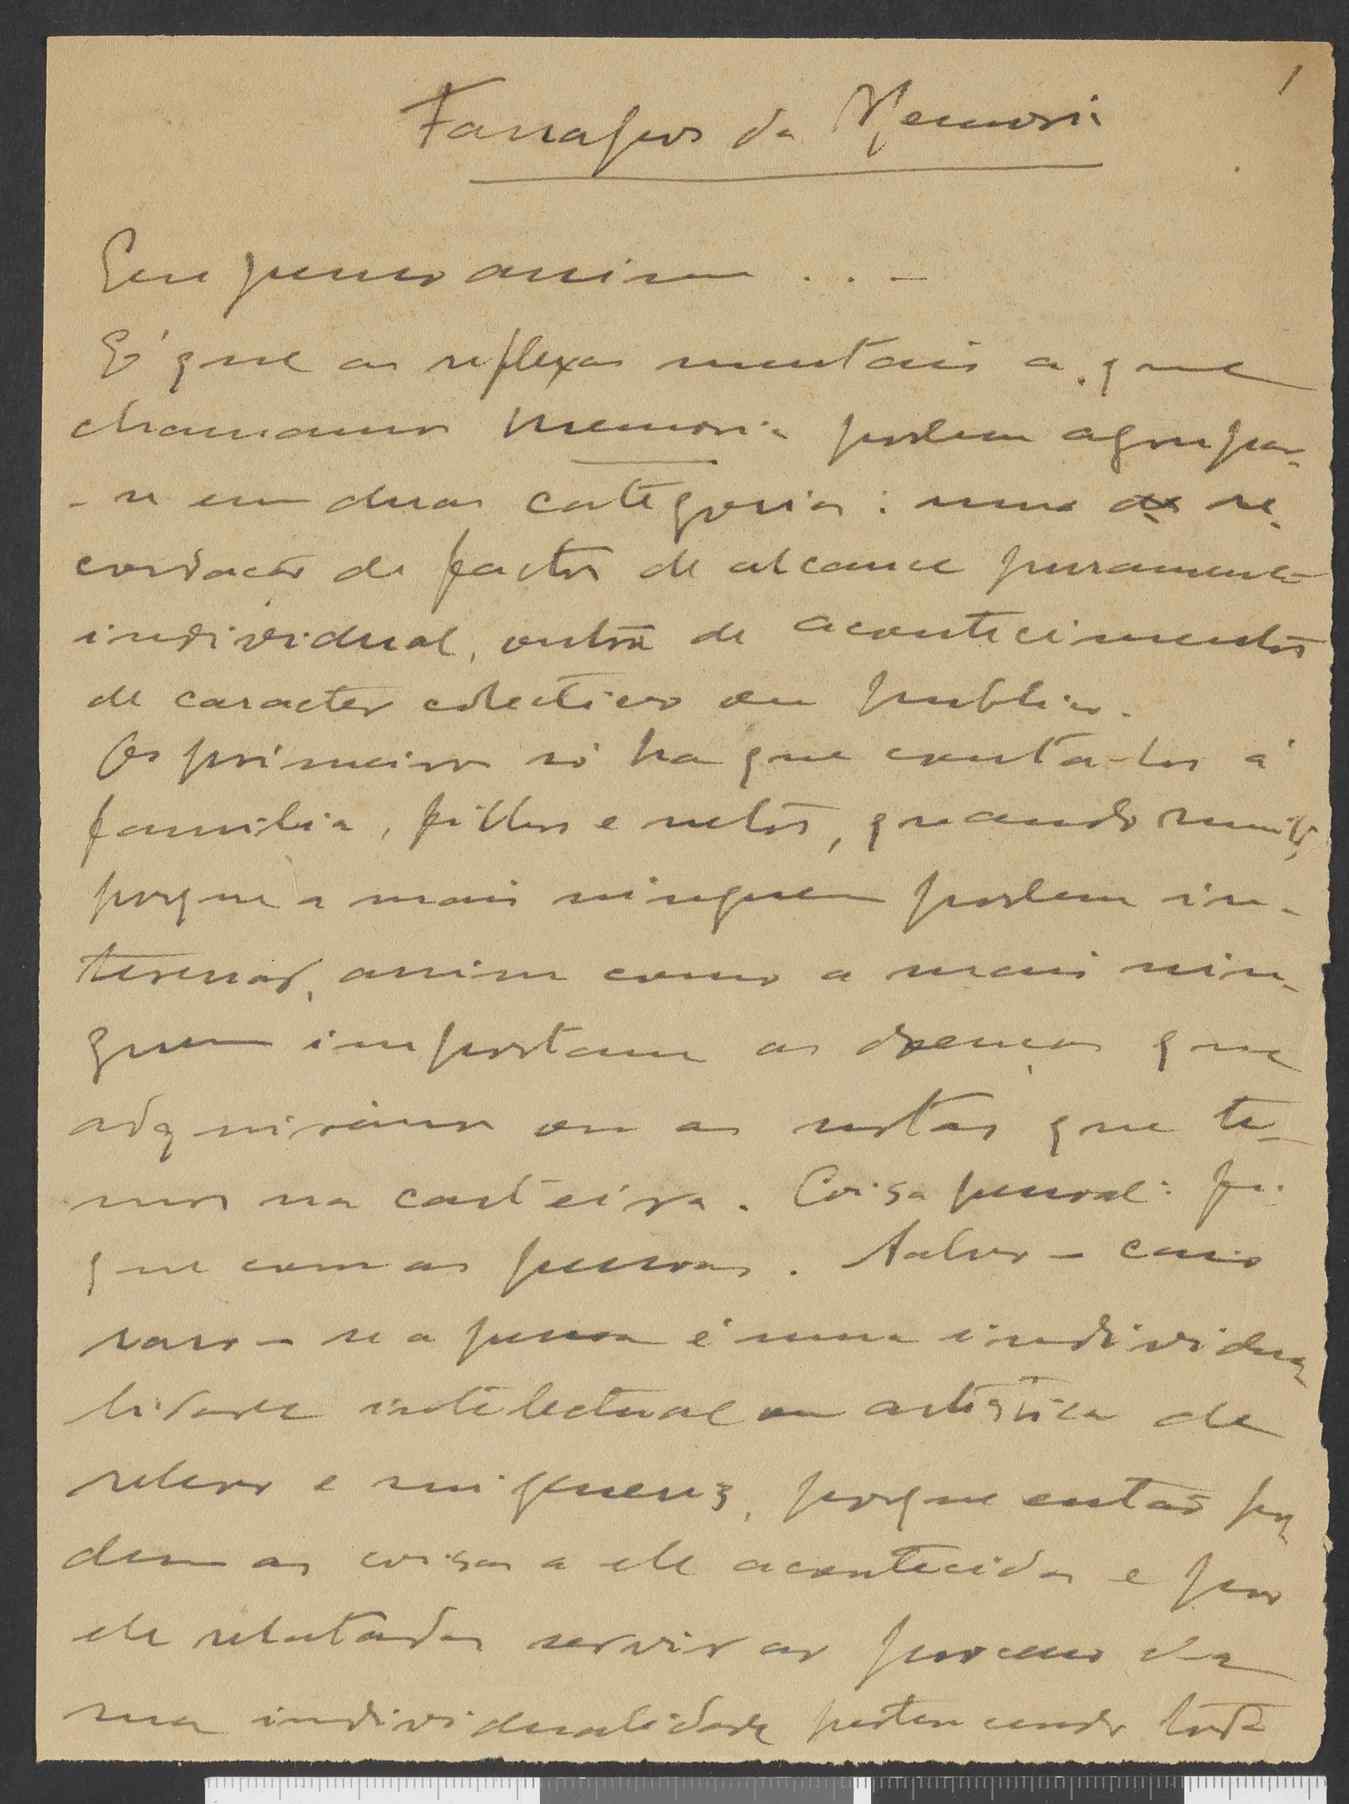 1
Farrapos da Memoria
Eu penso assim . . . -
E' que as reflexas mentais a que
chamamos memoria podem agrupar-
- se em duas categorias : uma de re-
cordação de factos de alcance puramente
individual, outra de acontecimentos
de caracter colectivo ou publico.
Os primeiros só ha que conta-los á
familia, filhos e netos, quando muito,
porque a mais ninguem podem in-
teressar, assim como a mais nin-
guem importam as doenças que
adquirimos ou as notas que te-
mos na carteira. Coisa pessoal: fi-
que com as pessoas. Salvo - caso
raro - se a pessoa é uma individua-
lidade intelectual ou artistica de
relevo e influencia, porque então po-
dem as coisas a ele acontecidas e por
ele relatadas servir ao processo da
sua individualidade pertencendo toda